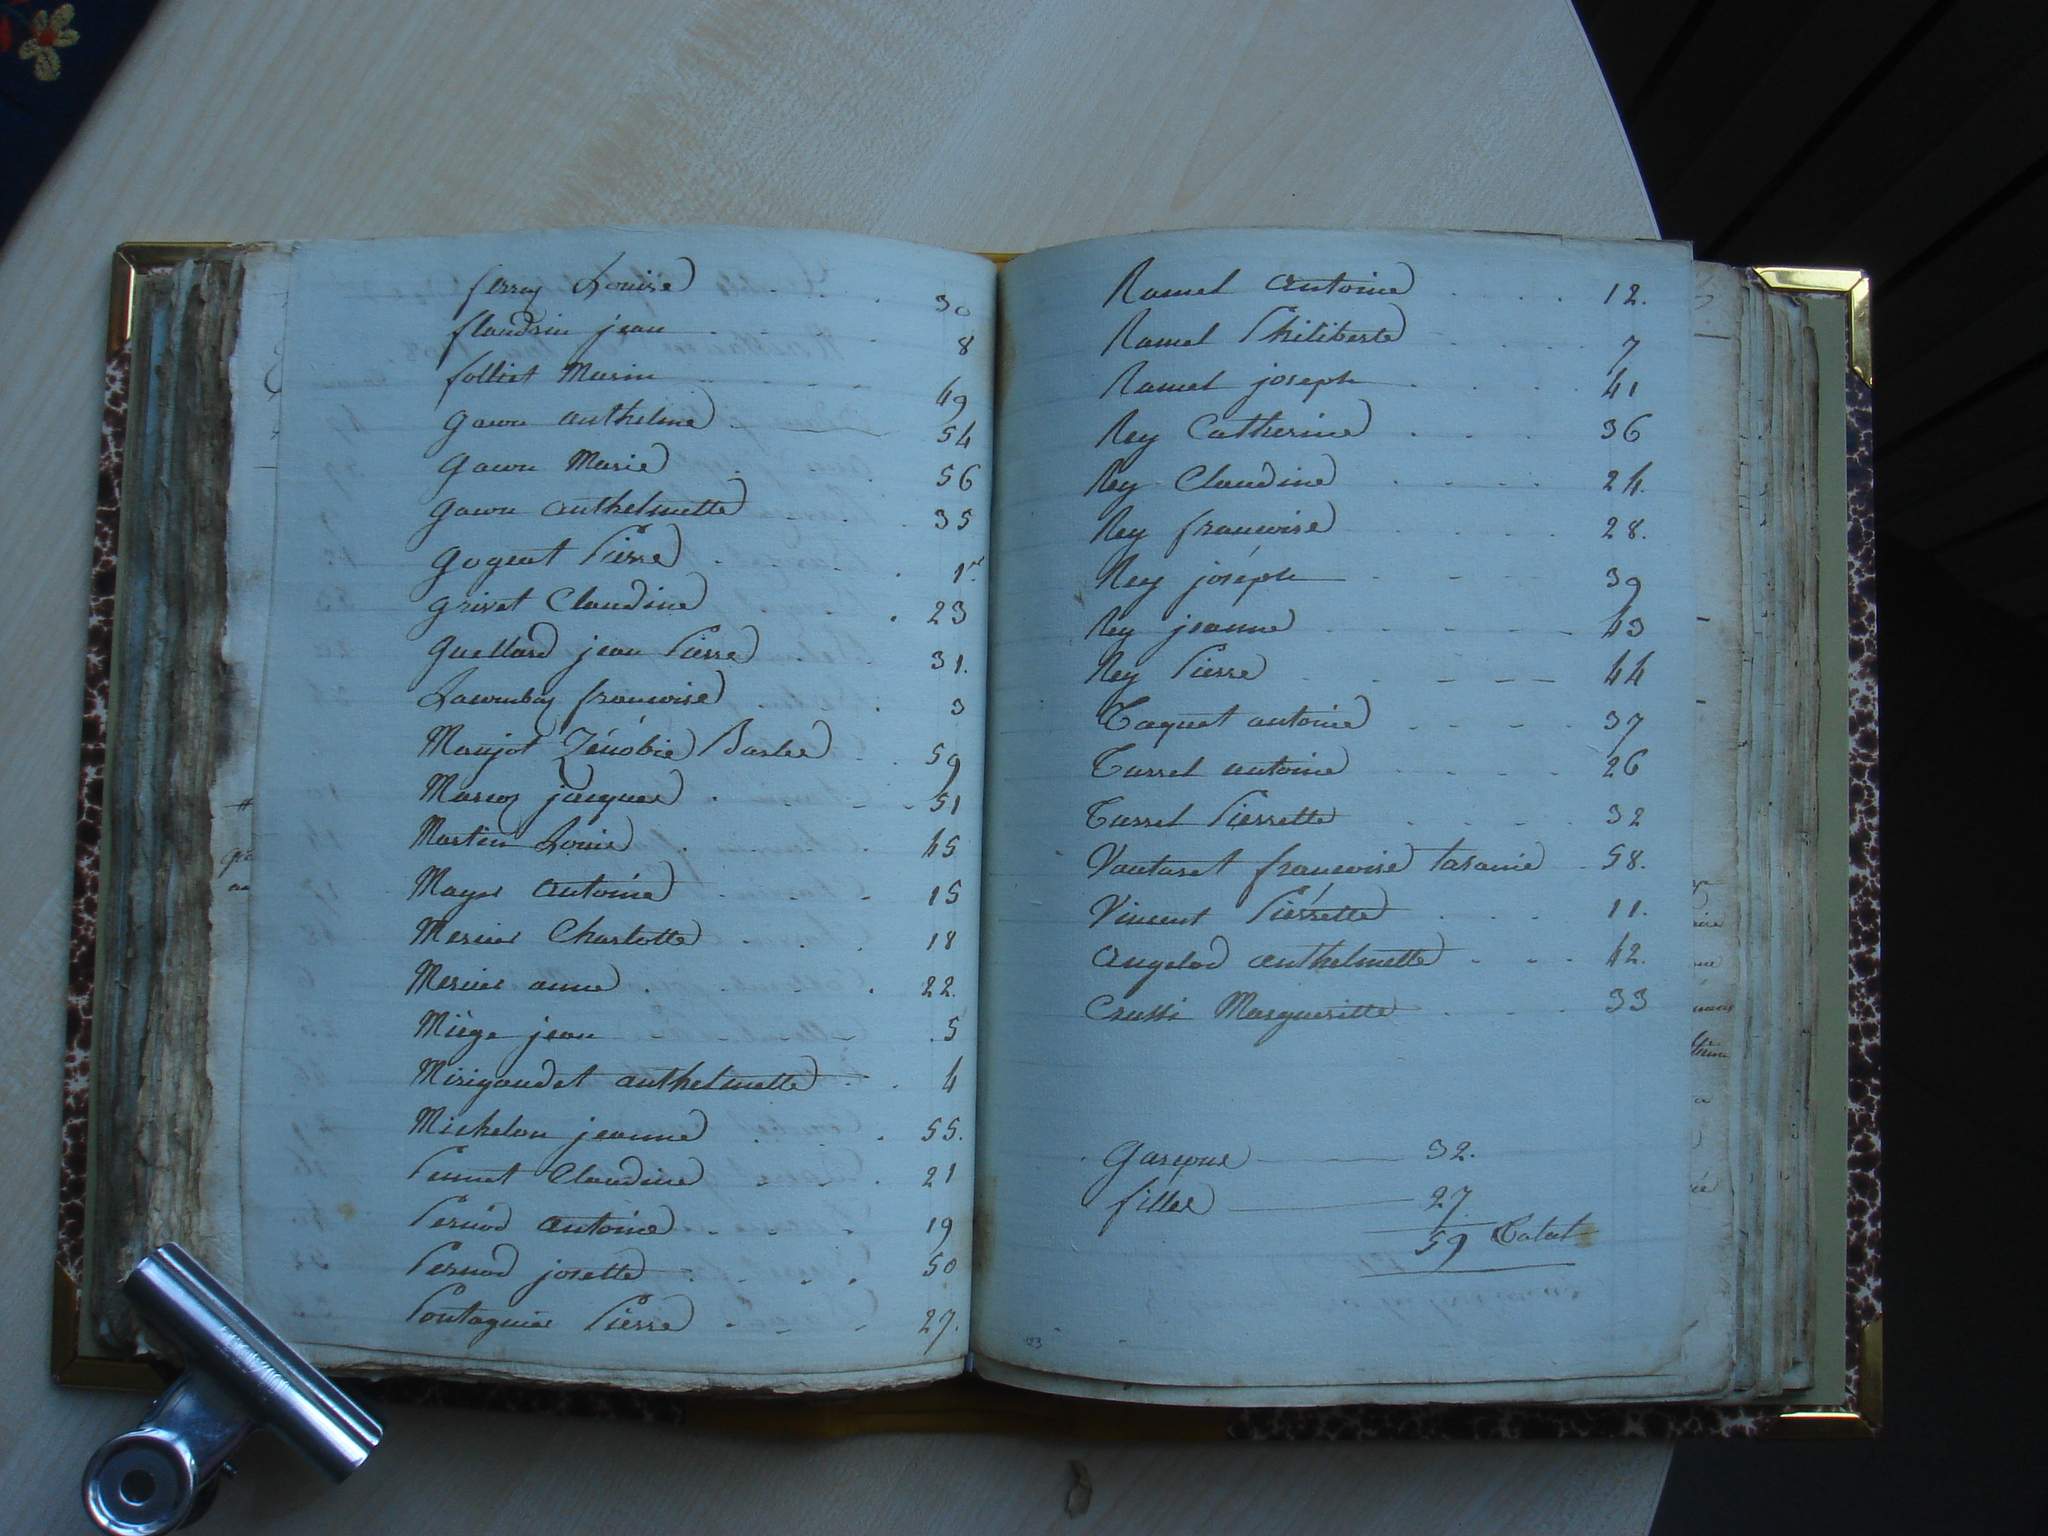 ferroy Louise . . 30
flandrin jean . . 8
folliet Marin . . 49
gawn anthelme . 54
gawn Marie . . 56
gawn anthelmette . . 35
gogeat Pierre . . . 1er
grivet Claudine . 23
guellard jean Pierre . . 31.
françoise . 3
Maujot Zénobie Barbe . 59
jacques . . . 51
Martin Louis . . . 45
Mayer antoine . . . 15
Mercier Charlotte . . . 18
Mercier anne . . . . 22.
Miège jean . . 5
Mirigaudet anthelmette . . 4
Michelon jeanne . . . 55.
Pennet Claudine . . . 21
Pernod antoine . . . 19
Pernod josette . . . . 50
Pontagnier Pierre . . . 27.
Ramel antoine . . . . 12.
Ramel Philiberte . . . . 7
Ramel joseph . . . . 41
Rey Catherine . . . . 36
Rey Claudine . . . . 24.
Rey françoise . . . 28.
Rey joseph . . . 39
Rey jeanne . . . . 43
Rey Pierre . . . . 44
Taquet antoine . . . . 37
Turrel antoine . . . . 26
Turrel Pierrette . . . . 32
Vautaret françoise tarasie . 58.
Vincent Pierrette . . . 11.
Angelod anthelmette . . . 42.
Margueritte . . . 33
garçons 32.
filles 27
59 Total